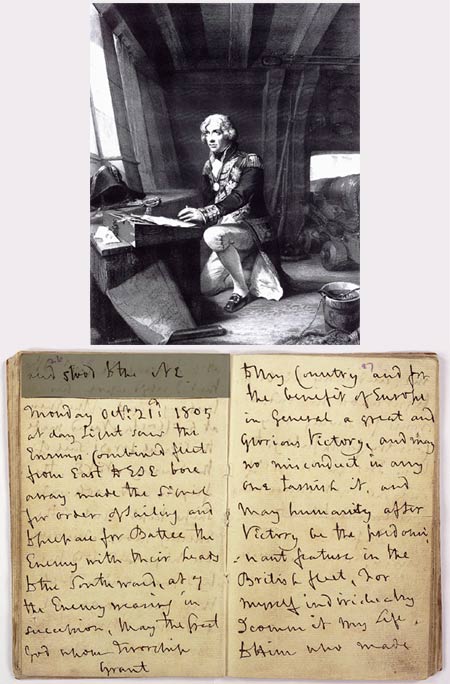 and stood to the NE
Monday Octr 21st 1805
at day Light saw the
Enemys Combined fleet
from East to ESE bore
away made the Signal
for order of Sailing and
to prepare for Battle the
Enemy with their heads
to the Southward, at 7
the Enemy wearing in
succession, May the Great
God whom I worship
Grant
to my Country and for
the benefit of Europe
in General a great and
Glorious Victory, and may
no misconduct in any
one tarnish it, and
may humanity after
Victory be the predomi
-nant feature in the
British fleet, For
myself individually
I commit my Life
to Him who made